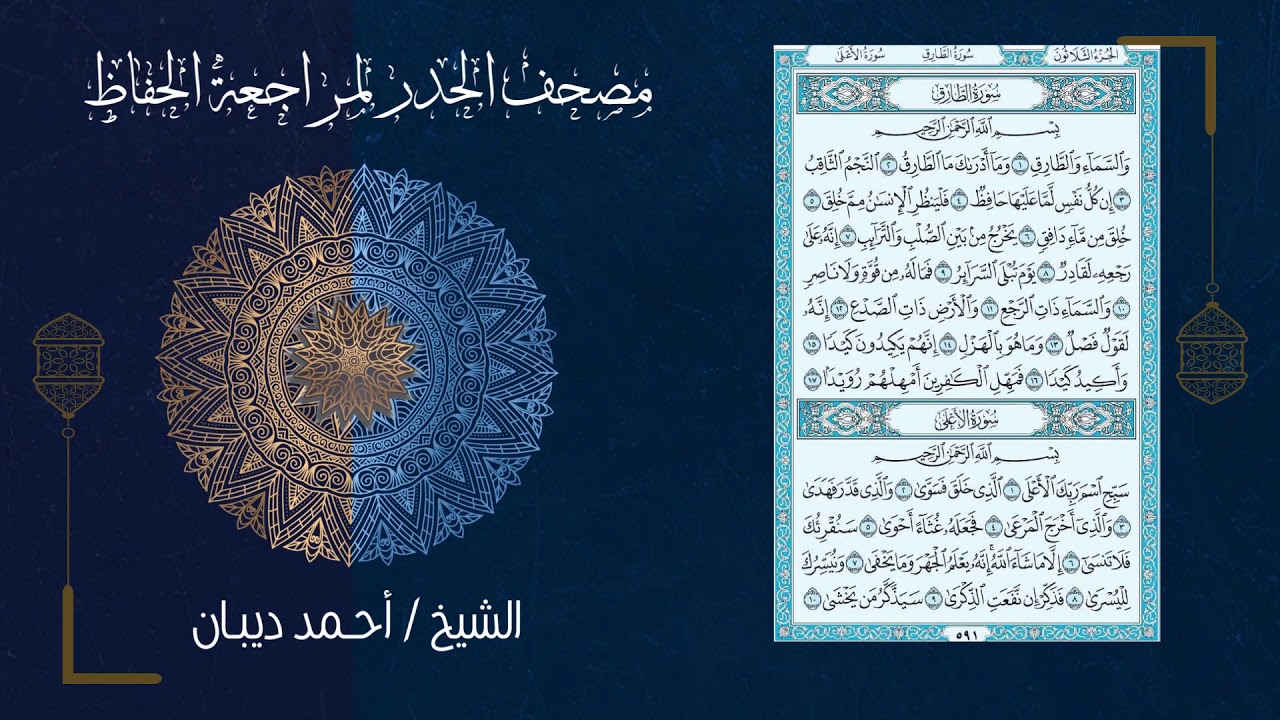 مصحف الحدر لمراجعة الحفاظ
الشيخ / أحمد ديبان
الجزء الثلاثون سورة الطارق سورة الأعلى
سُورَةُ الطَّارِقِ
بِسْمِ اللَّهِ الرَّحْمَٰنِ الرَّحِيمِ
وَالسَّمَاءِ وَالطَّارِقِ ١ وَمَا أَدْرَاكَ مَا الطَّارِقُ ٢ النَّجْمُ الثَّاقِبُ
٣ إِن كُلُّ نَفْسٍ لَّمَّا عَلَيْهَا حَافِظٌ ٤ فَلْيَنظُرِ الْإِنسَانُ مِمَّ خُلِقَ ٥
خُلِقَ مِن مَّاءٍ دَافِقٍ ٦ يَخْرُجُ مِن بَيْنِ الصُّلْبِ وَالتَّرَائِبِ ٧ إِنَّهُ عَلَىٰ
رَجْعِهِ لَقَادِرٌ ٨ يَوْمَ تُبْلَى السَّرَائِرُ ٩ فَمَا لَهُ مِن قُوَّةٍ وَلَا نَاصِرٍ
١٠ وَالسَّمَاءِ ذَاتِ الرَّجْعِ ١١ وَالْأَرْضِ ذَاتِ الصَّدْعِ ١٢ إِنَّهُ
لَقَوْلٌ فَصْلٌ ١٣ وَمَا هُوَ بِالْهَزْلِ ١٤ إِنَّهُمْ يَكِيدُونَ كَيْدًا ١٥
وَأَكِيدُ كَيْدًا ١٦ فَمَهِّلِ الْكَافِرِينَ أَمْهِلْهُمْ رُوَيْدًا ١٧
سُورَةُ الْأَعْلَىٰ
بِسْمِ اللَّهِ الرَّحْمَٰنِ الرَّحِيمِ
سَبِّحِ اسْمَ رَبِّكَ الْأَعْلَى ١ الَّذِي خَلَقَ فَسَوَّىٰ ٢ وَالَّذِي قَدَّرَ فَهَدَىٰ
٣ وَالَّذِي أَخْرَجَ الْمَرْعَىٰ ٤ فَجَعَلَهُ غُثَاءً أَحْوَىٰ ٥ سَنُقْرِئُكَ
فَلَا تَنسَىٰ ٦ إِلَّا مَا شَاءَ اللَّهُ إِنَّهُ يَعْلَمُ الْجَهْرَ وَمَا يَخْفَىٰ ٧ وَنُيَسِّرُكَ
لِلْيُسْرَىٰ ٨ فَذَكِّرْ إِن نَّفَعَتِ الذِّكْرَىٰ ٩ سَيَذَّكَّرُ مَن يَخْشَىٰ ١٠
٥٩١